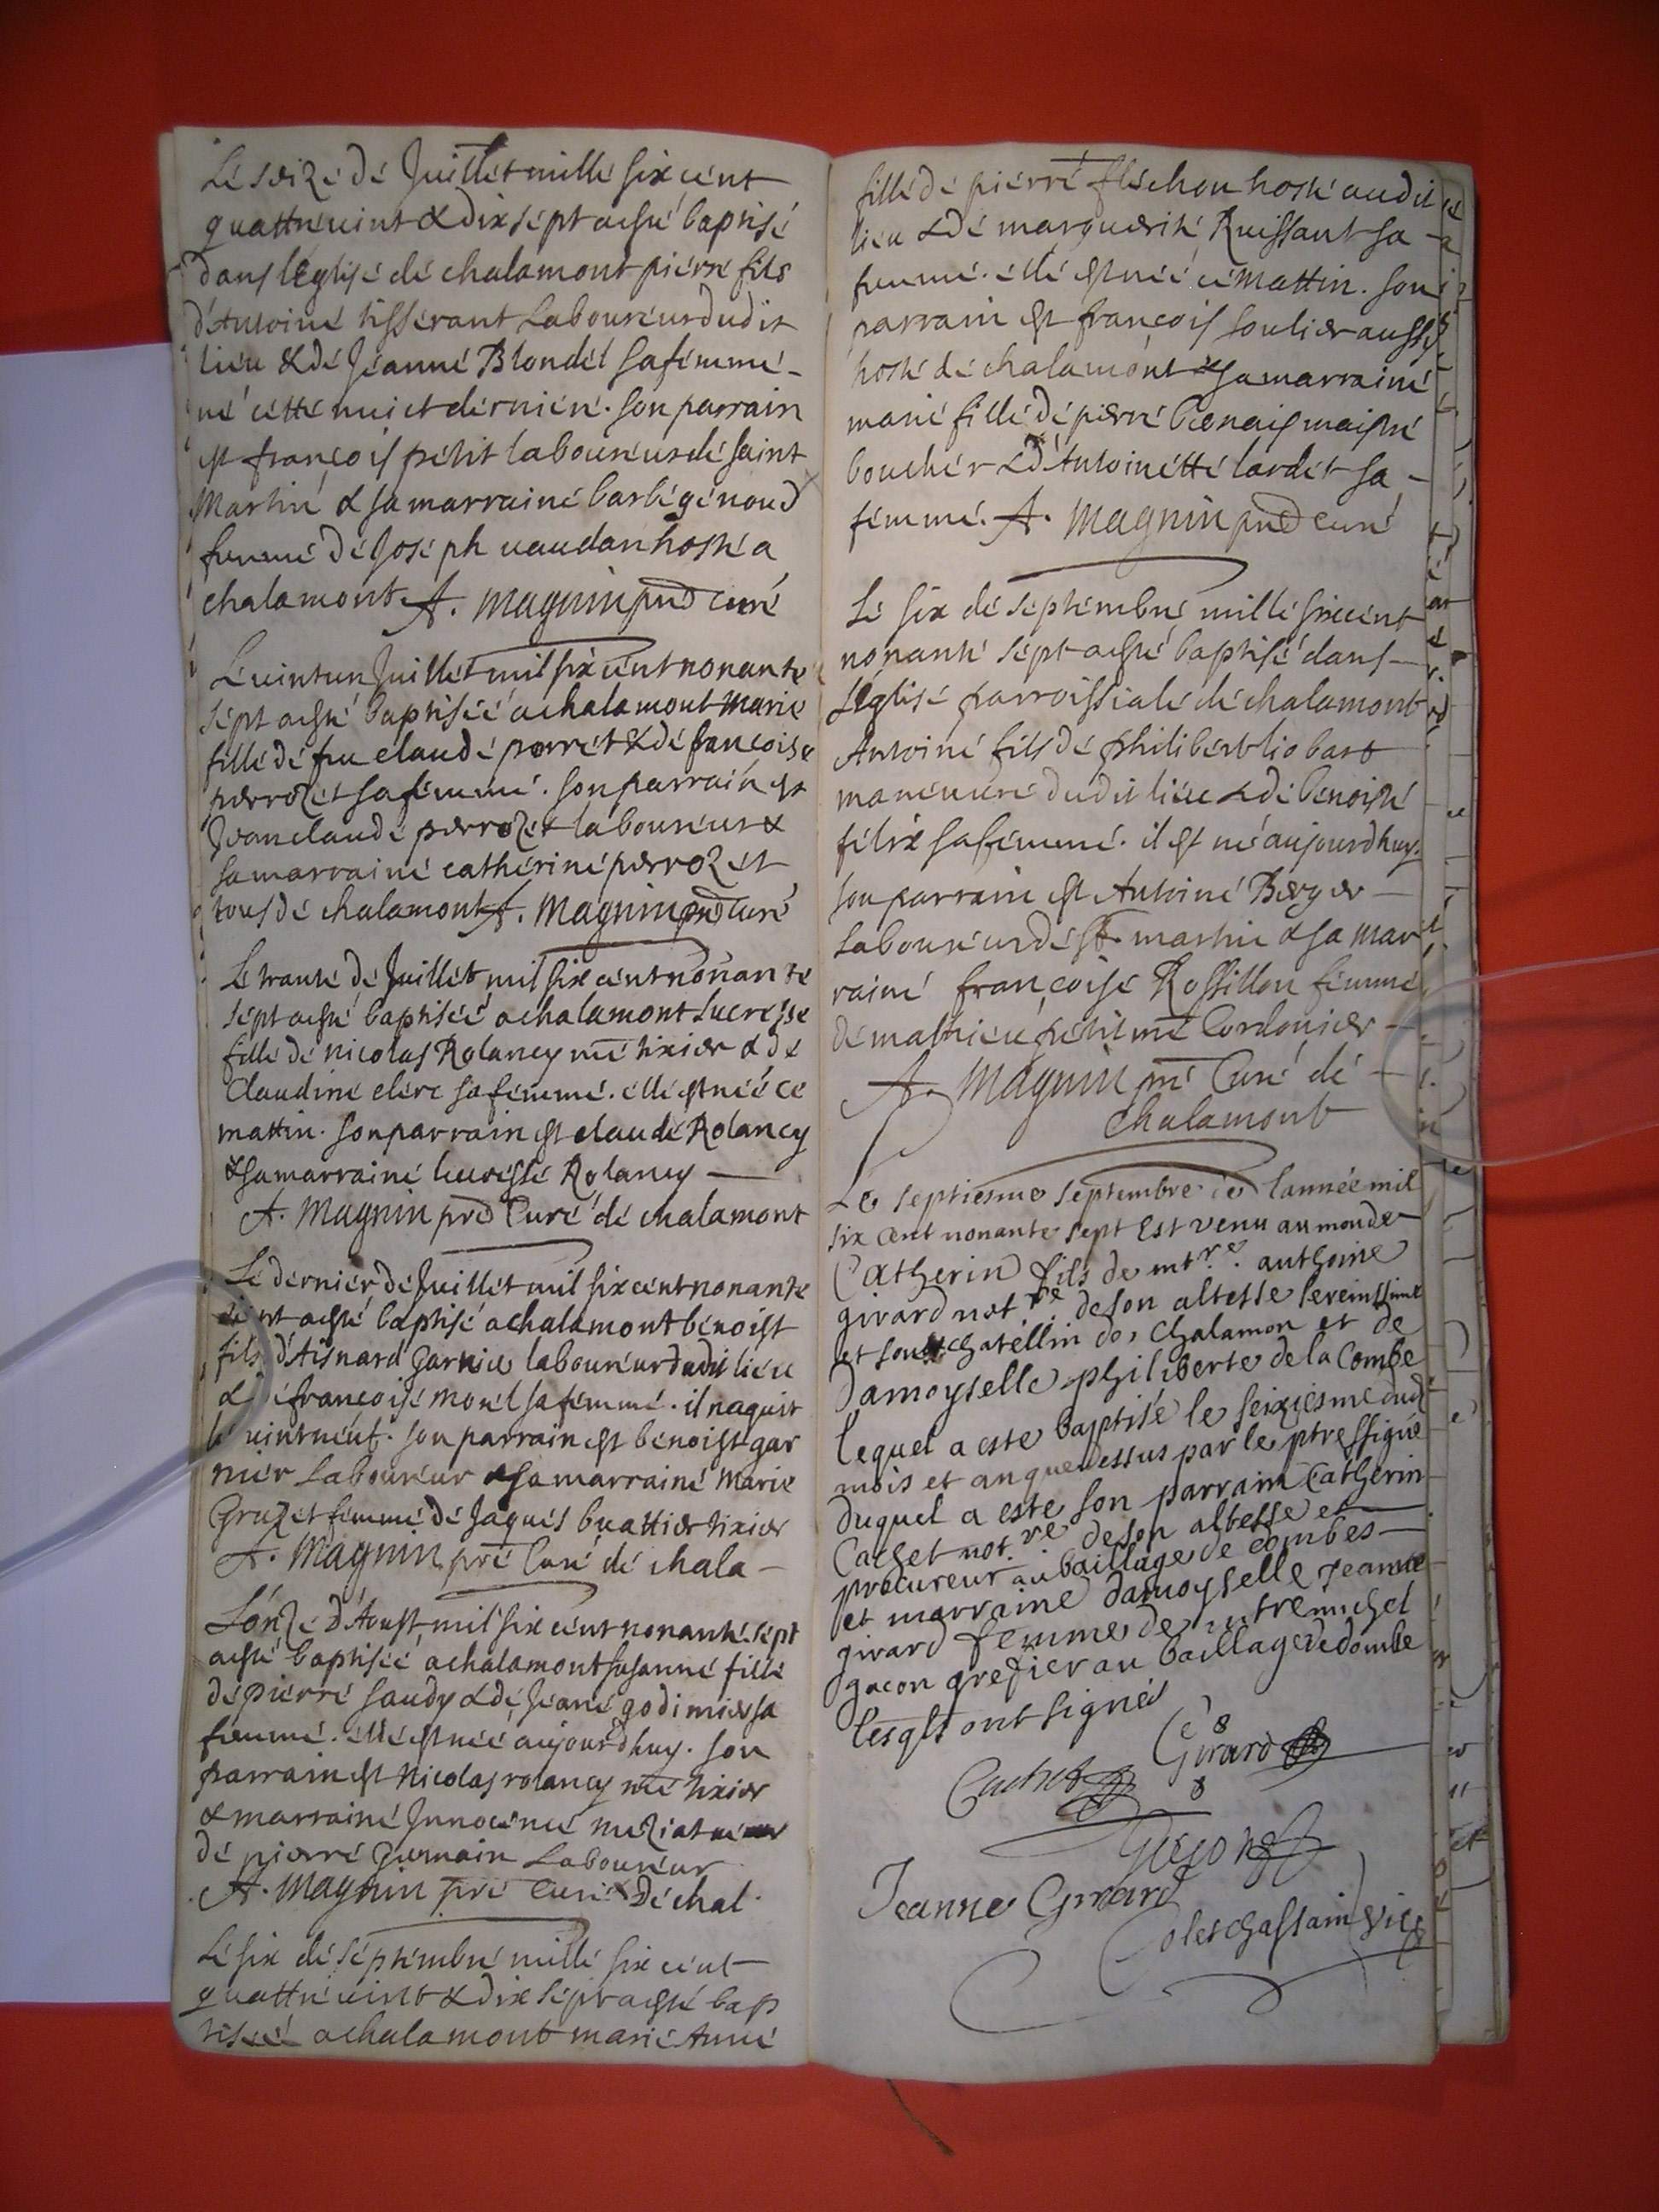 Le seize de Juillet mille six cent
quattre uint & dix sept a esté baptisé
dans l'Eglise de chalamont pierre fils
d'Antoine tisserant Laboureur dudit
lieu & de Jeanne Blondel sa femme
né cette nuict derniere. son parrain
est françois petit laboureur de saint
Martin & sa marraine barbe genoud
femme de Joseph vaudan hoste a
chalamont. A. Magnin curé
Le uint un Juillet mil six cent nonante
sept a esté baptiseé a chalamont Marie
fille de feu claude perret & de françoise
perrozet sa femme. son parrain est
Jean claude perrozet laboureur &
sa marraine catherine perrozet
tous de chalamont A. Magnin curé
Le trante de Juillet mil six cent nonante
sept a esté baptiseé a chalamont Lucresse
fille de nicolas Rolancy me tixier & de
Claudine clerc sa femme. elle est neé ce
mattin. son parrain est claude Rolancy
& sa marraine lucresse Rolancy
A. Magnin Curé de chalamont
Le dernier de Juillet mil six cent nonante
sept a esté baptisé a chalamont benoist
fils d'Aisnard Garnier laboureur dudit lieu
& de françoise morel sa femme. il naquit
le uint neuf. son parrain est benoist gar
nier Laboureur & sa marraine Marie
Gruzet femme de Jaques buattier tixier
A. Magnin pre Curé de chala
L'onze d'Aoust mil six cent nonante sept
a esté baptiseé a chalamont susanne fille
de pierre saudy & de Jeane godimier sa
femme. elle est neé aujourdhuy. son
parrain est Nicolas rolancy me tixier
& marraine Innocence meziat
de pierre Germain Laboureur
A. Magnin pre Curé De chal.
Le six de septembre mille six cent
quattre uint & dix sept a esté bap
tiseé a chalamont marie Anne
fille de pierre fléchon hoste audit
lieu & de marguerite Ruissant sa
femme. elle est neé ce mattin. son
parrain est françois soulier aussy
hoste de chalamont & sa marraine
marie fille de pierre maistre
boucher & d'Antoinette lardet sa
femme. A. Magnin curé
Le six de septembre mille six cent
nonante sept a esté baptisé dans
l'Eglise parroissiale de chalamont
Antoine fils de philibert liobard
maneuure dudit lieu & de benoiste
felix sa femme. il est né aujourdhuy.
son parrain est Antoine Berger
Laboureur de st. martin & sa mar
raine françoise Rossillon femme
de mathieu petit me Cordonier
A. Magnin pre Curé de
Chalamont
Le septiesme septembre de lannée mil
six cent nonante sept est venu au monde
Catherin fils de mtre. anthoine
girard notre de son altesse sereinssime
et sous chatellin de Chalamon et de
Damoyselle philiberte de la Combe
lequel a este baptisé le seixiesme dud
mois et an que dessus par le ptre ssigné
duquel a este son parrain Catherin
Cachet not.re de son altesse et
procureur au baillage de combes
et marraine damoyselle Jeanne
girard femme de mtre michel
gacon grefier au baillage de dombe
lesqls ont signés
Girard
Cachet
Gacon
Jeanne Girard
Colet chassain vic